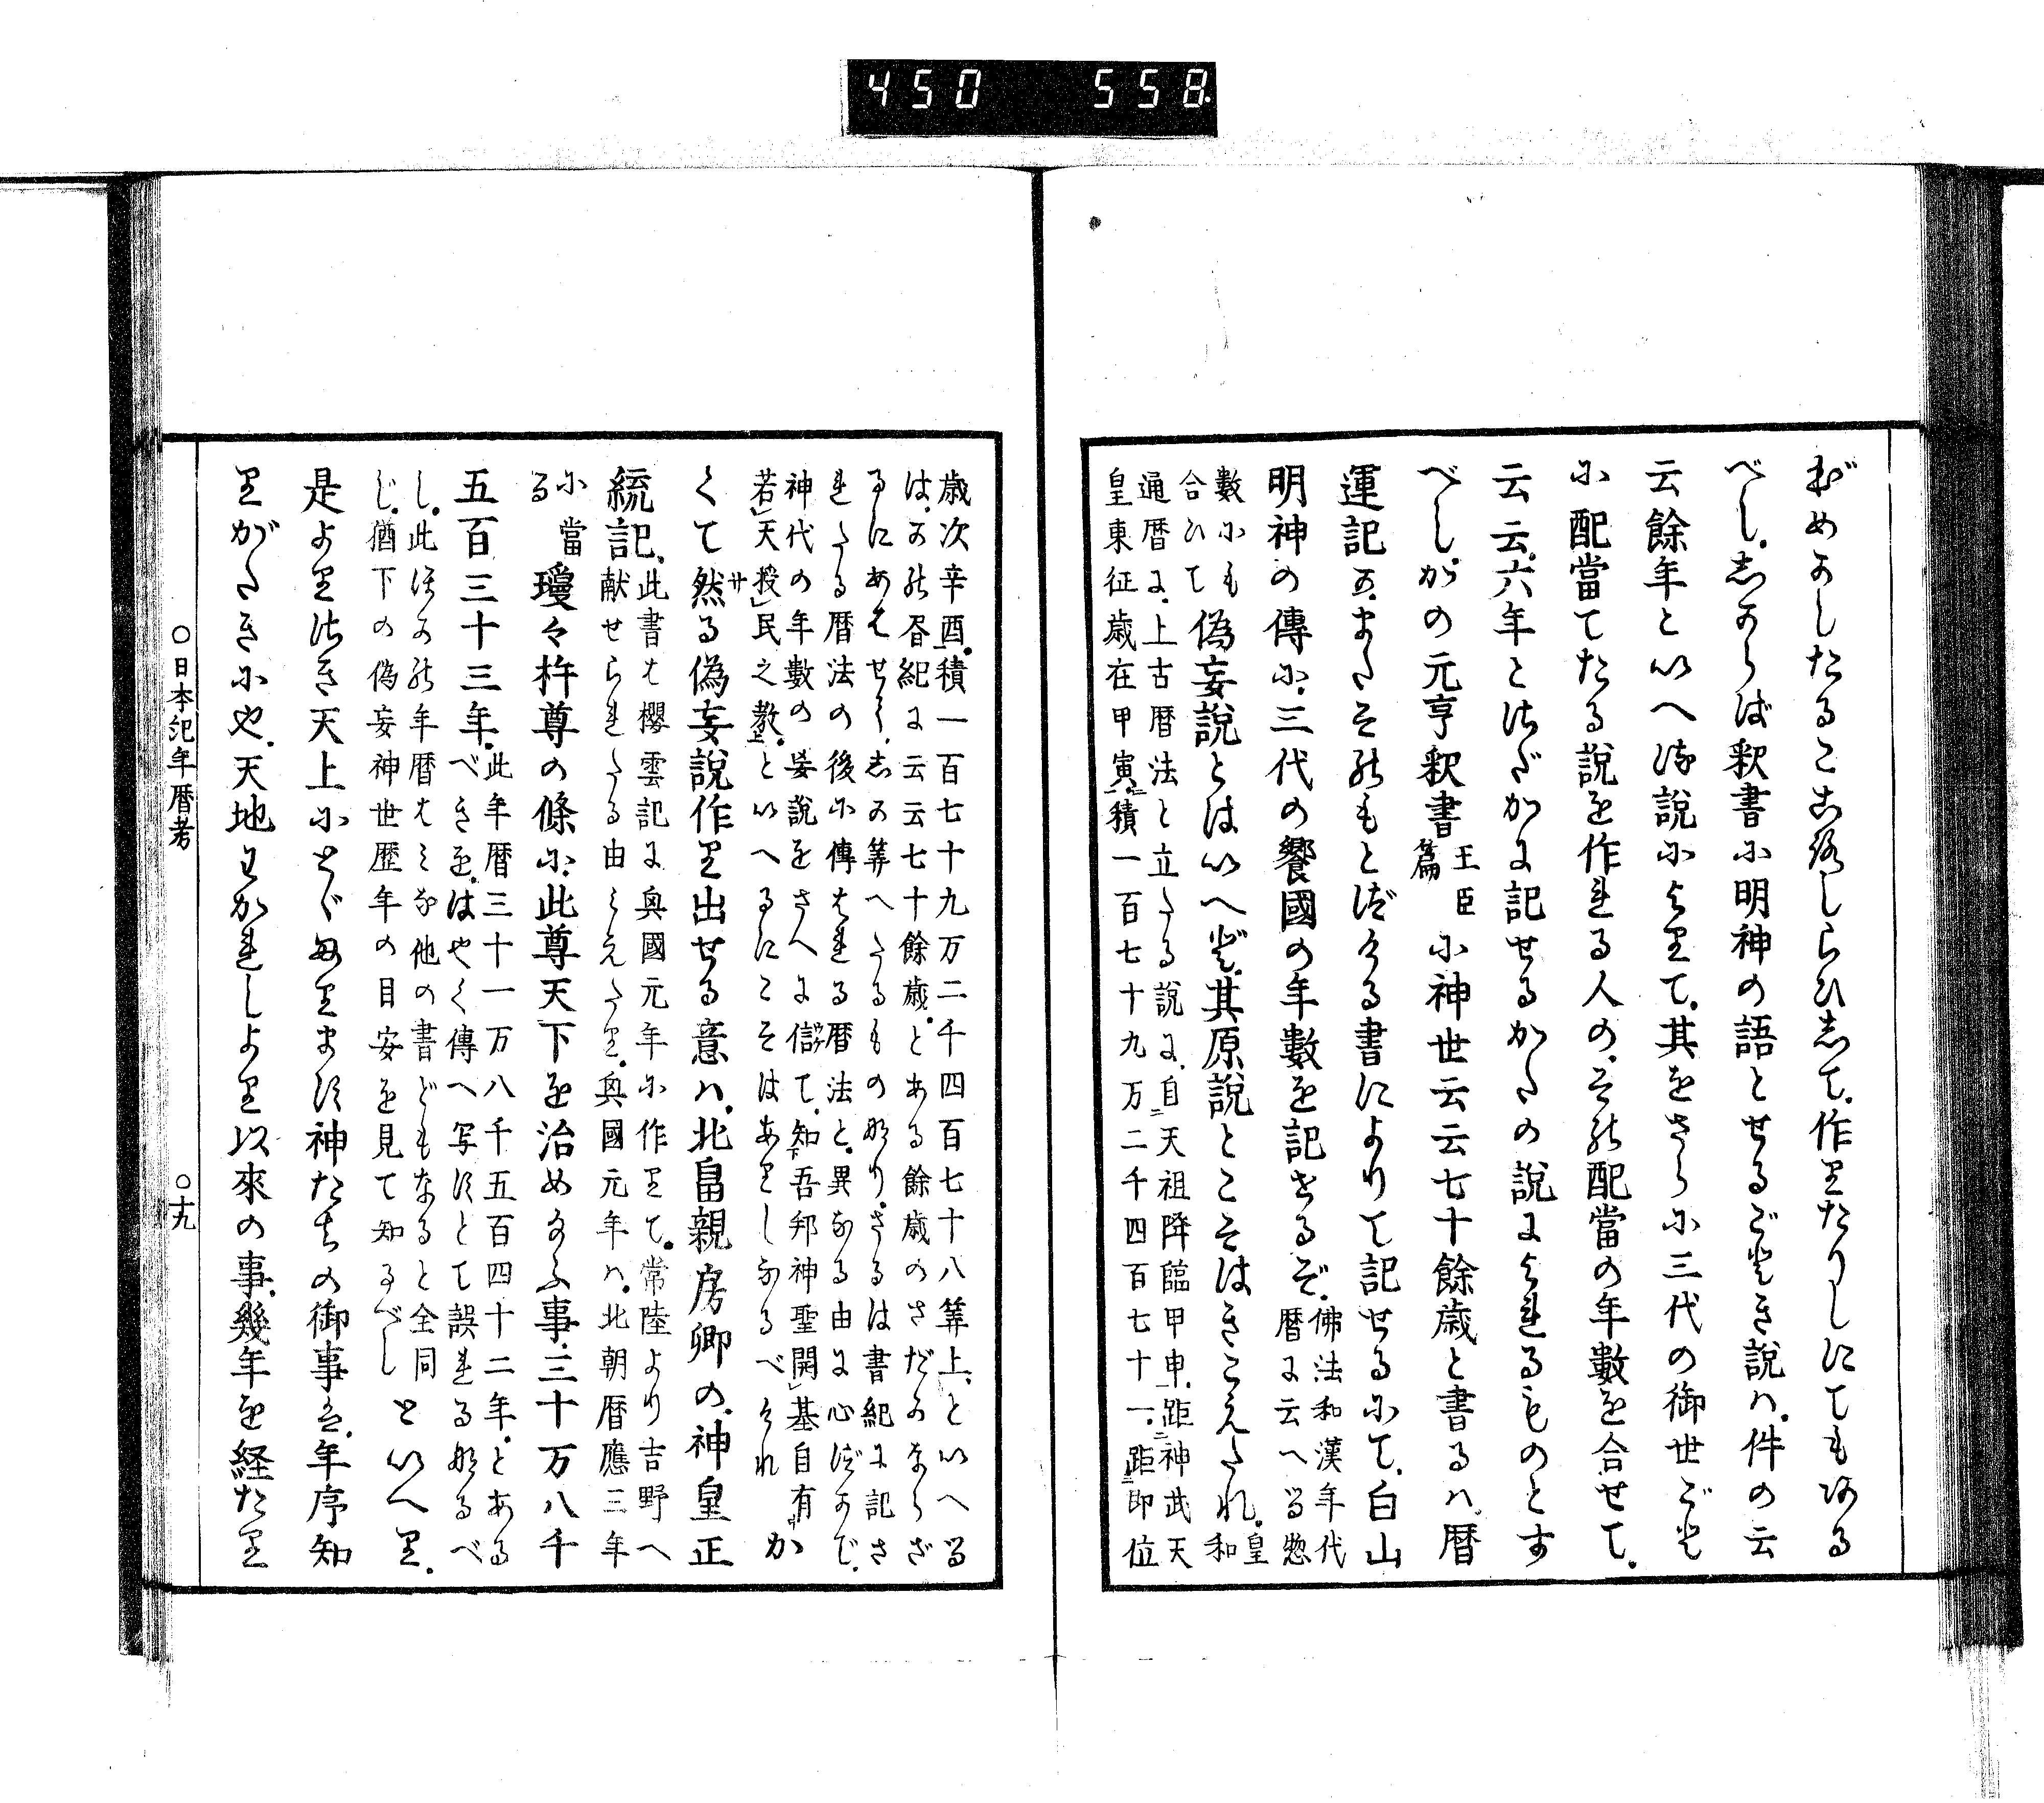 450 558.
べし。志からば釈書小明神の語とせるごとき説ハ。件の云
云餘年といへる説小より て。其をさら小三代の御世ごと
小配當てたる説を作れる人の、その配當の年數を合せて。
云云。六年とはだかに記せるかたの説によれるものとす
べし。かの元亨釈書 王臣篇 小神世云云七十餘歳と書るハ。暦
運記か。またそのもとづける書によりて記せる小て。白山
明神の傳小。三代の饗國の年數を記せるぞ。佛法和漢年代暦に云へる惣
數小も合ひて 偽妄説とはいへど。其原説とこそはきこえたれ。皇和
通暦に。上古暦法と立たる説に。自天祖降臨甲申。距神武天
皇東征歳在甲寅積一百七十九万二千四百七十一。距即位
歳次辛酉。積一百七十九万二千四百七十八筭上。といへる
は。かの昏紀に云云七十餘歳。とある餘歳のさだかならざ
るにあはせて。志か筭へたるもの也。さるは書紀に記さ
れたる暦法の後小傳はれる暦法と。異なる由に心づかで。
神代の年數の妄説をさへに信て。知吾邦神聖開基自有
若天授民之教。といへるにこそはありしなるべけれ か
くて然る偽妄説作り出せる意ハ。北畠親房卿の。神皇正
統記。此書は櫻雲記に興國元年小作りて。常陸より吉野へ献せられたる由みえたり。興國元年ハ。北朝暦應三年
小當る 瓊々杵尊の條小。此尊天下を治め給ふ事。三十万八千
五百三十三年。此年暦三十一万八千五百四十二年。とあるべきを。はやく傳へ写すとて誤れる也るべ
し。此ほかの年暦はみな他の書どもなると全同じ。猶下の偽妄神世歴年の目安を見て知るべし といへり。
是よりさき天上小とどまります神たちの御事は。年序知
りがたき小や。天地わかれしより以來の事。幾年を経たり
○日本紀年暦考 ○十九